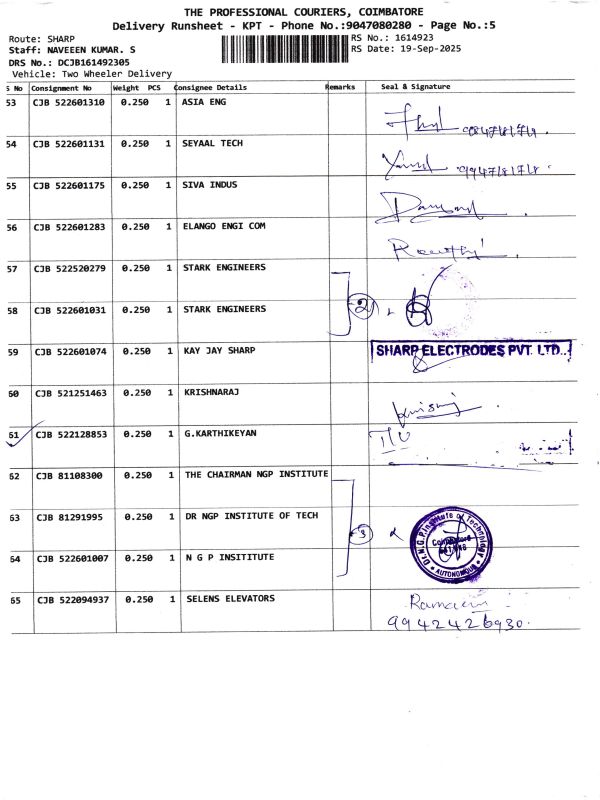 THE PROFESSIONAL COURIERS, COIMBATORE
Delivery Runsheet - KPT - Phone No.:9047080280 - Page No.:5
Route: SHARP
RS No.: 1614923
Staff: NAVEEEN KUMAR. S
RS Date: 19-Sep-2025
DRS No.: DCJB161492305
Vehicle: Two Wheeler Delivery
S No Consignment No Weight PCS Consignee Details Remarks Seal & Signature
53 CJB 522601310 0.250 1 ASIA ENG
54 CJB 522601131 0.250 1 SEYAAL TECH
55 CJB 522601175 0.250 1 SIVA INDUS
56 CJB 522601283 0.250 1 ELANGO ENGI COM
57 CJB 522520279 0.250 1 STARK ENGINEERS
58 CJB 522601031 0.250 1 STARK ENGINEERS
2
59 CJB 522601074 0.250 1 KAY JAY SHARP SHARP ELECTRODES PVT. LTD.
60 CJB 521251463 0.250 1 KRISHNARAJ
61 CJB 522128853 0.250 1 G.KARTHIKEYAN
62 CJB 81108300 0.250 1 THE CHAIRMAN NGP INSTITUTE
63 CJB 81291995 0.250 1 DR NGP INSTITIUTE OF TECH
3
Dr. N.G.P. Institute of Technology
Coimbatore
AUTONOMOUS
64 CJB 522601007 0.250 1 N G P INSITITUTE
65 CJB 522094937 0.250 1 SELENS ELEVATORS
9942426930.